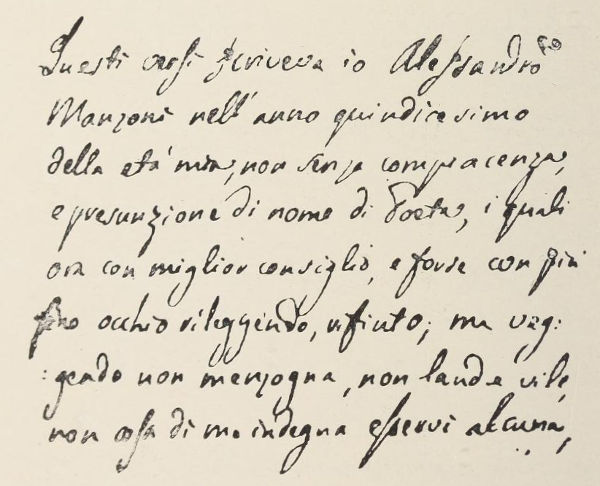 Questi versi scriveva io Alessandro
Manzoni nell'anno quindicesimo
della età mia, non senza compiacenza,
e presunzione di nome di Poeta, i quali
ora con miglior consiglio, e forse con più
fino occhio rileggendo, rifiuto; ma veg:
:gendo non menzogna, non laude vile,
non cosa di me indegna esservi alcuna,